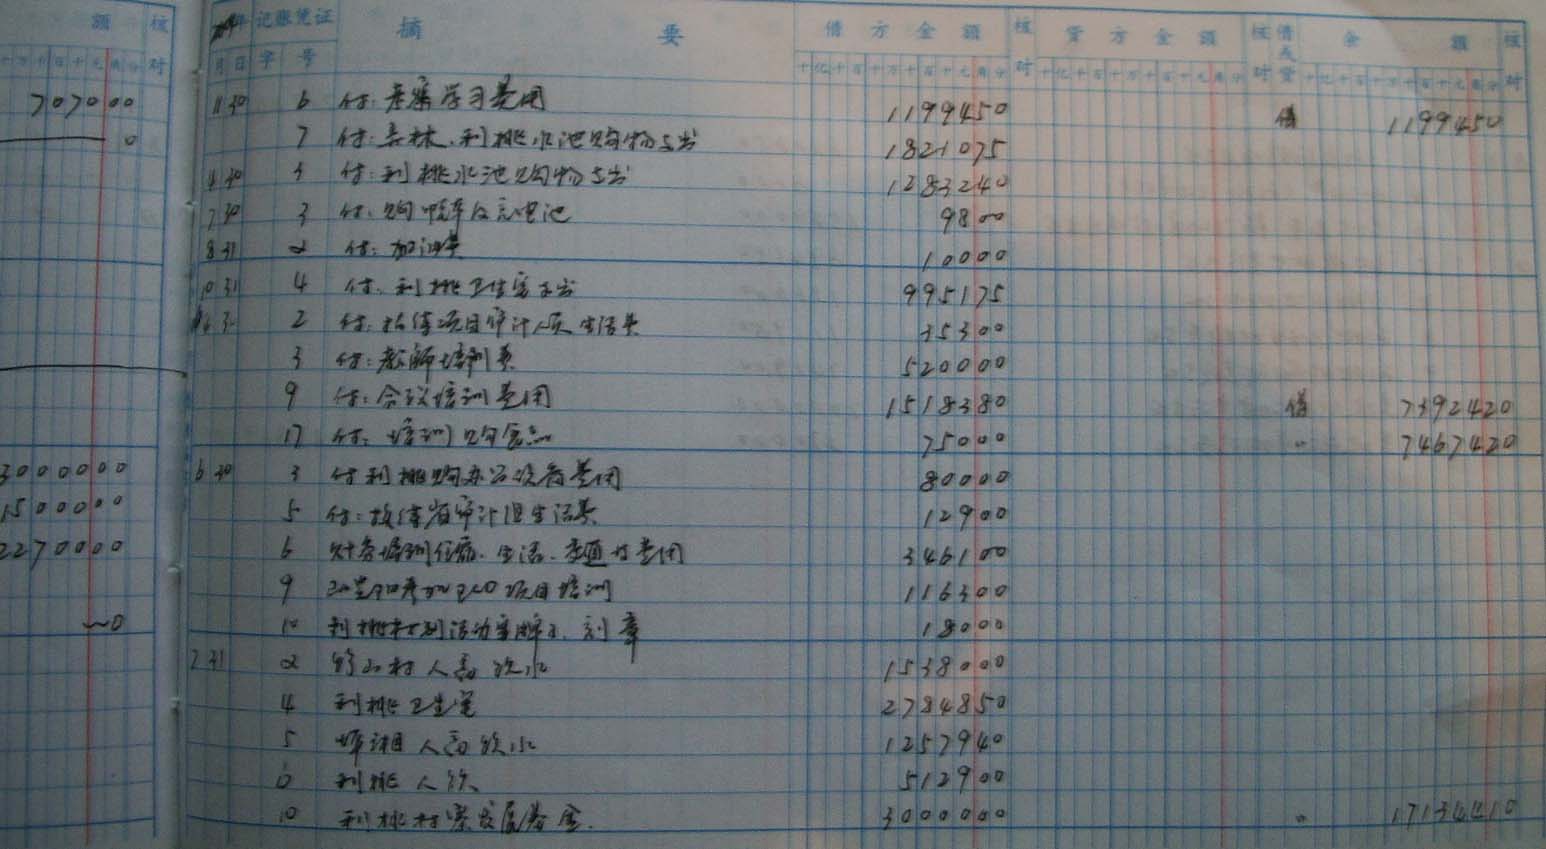 额 核对
707000
0
3000000
1500000
2270000
0
年 记账凭证 摘 要 借方金额 核对 贷方金额 核对 借或贷 余额 核对
月 日 字 号 十亿千百十万千百十元角分 十亿千百十万千百十元角分 十亿千百十万千百十元角分
11 30 6 付: 学习费用 1199450 借 1199450
7 付: 利桃水池购物支出 1821075
4 30 4 付: 利桃水池购物支出 1283240
7 30 3 付: 购 电池 9800
8 31 2 付: 加油费 10000
10 31 4 付: 利桃卫生室支出 995175
2 付: 接待项目审计人员生活费 35300
3 付: 教师培训费 520000
9 付: 会议培训费用 1518380 借 7392420
17 付: 培训购食品 75000 〃 7467420
6 30 3 付利桃购办公设备费用 80000
5 付: 接待省审计组生活费 12900
6 财务培训住宿、生活、交通费用 346100
9 参加 项目培训 116300
10 利桃村 活动室牌子、刻章 18000
7 31 2 村人畜饮水 1538000
4 利桃卫生室 2784850
5 人畜饮水 1257940
6 利桃人饮 512900
10 利桃村寨发展基金. 3000000 〃 17134410